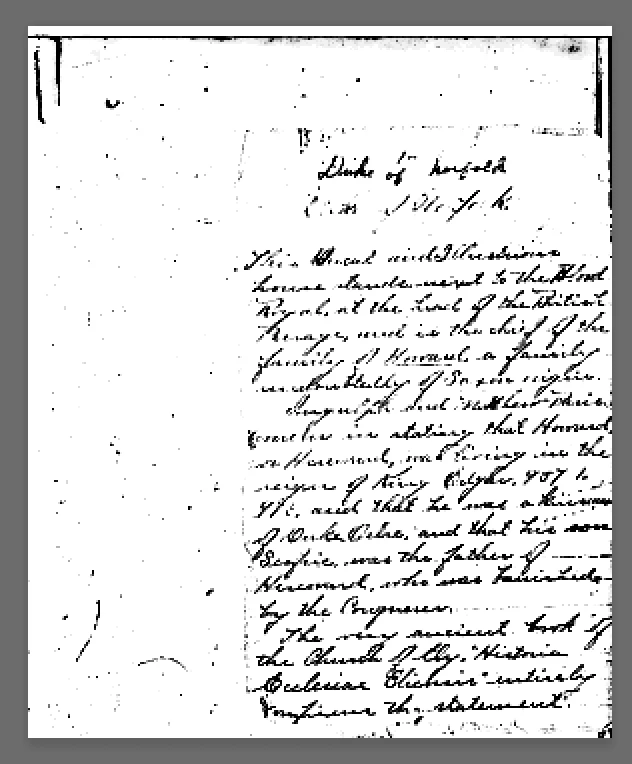 Duke of Norfolk
This Ducal and Illustrious
house stands next to the Blood
Royal, at the head of the British
Peerage, and is the chief of the
family of Howard, a family
undoubtedly of Saxon origin.
Ingulph and Mathew Paris
concur in stating that Howard,
or Hereward, was living in the
reign of King Edgar, 957 to
and that he was a kinsman
of Duke and that his son
was the father of
Hereward, who was banished
by the Conqueror.
The very ancient book of
the Church of Ely, "Historia
Ecclesiae Eliensis" entirely
confirms the statement.